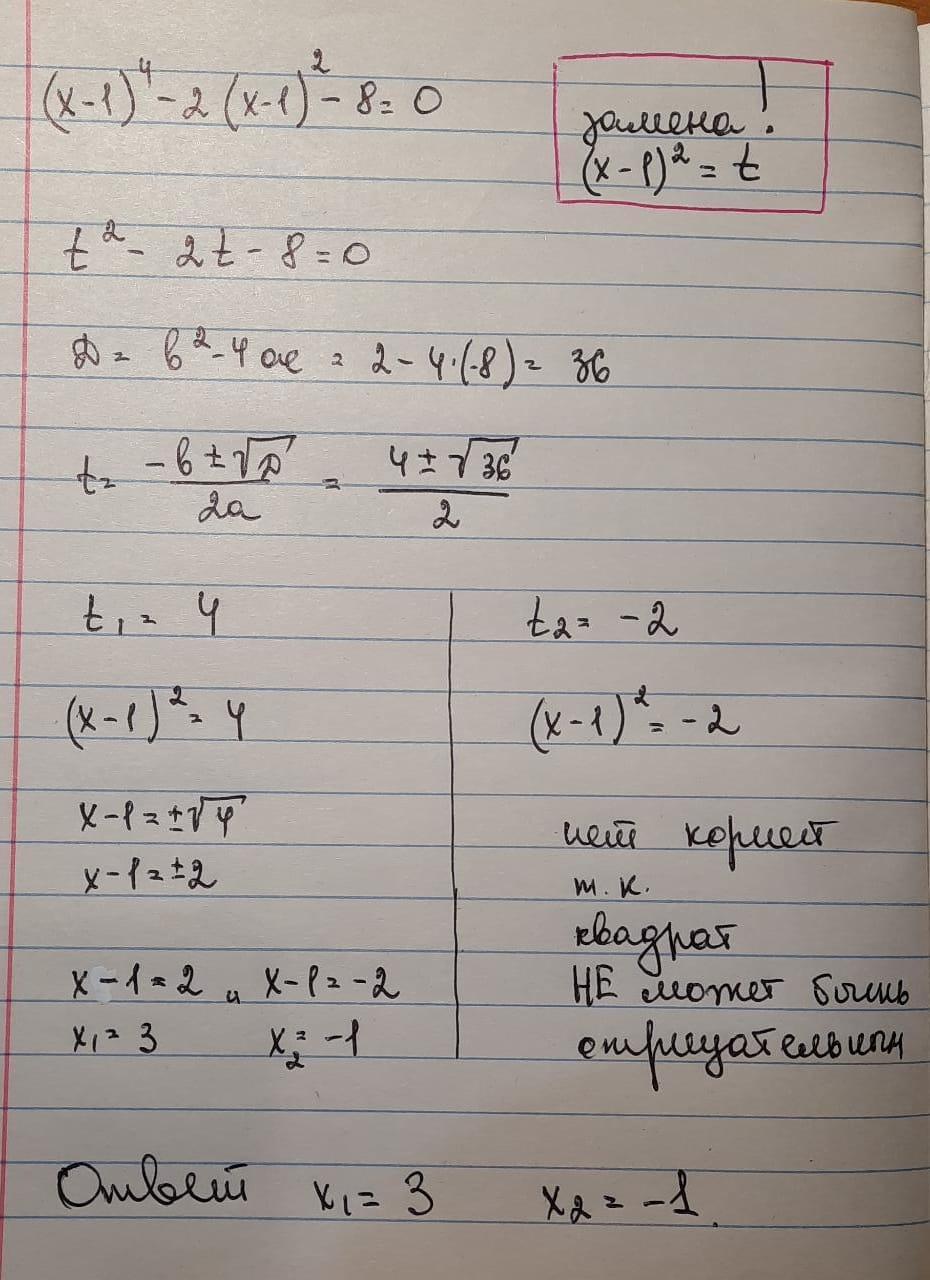 (x-1)⁴ - 2 (x-1)² - 8 = 0
замена !
(x-1)² = t
t² - 2t - 8 = 0
D = b² - 4ac = 2 - 4·(-8) = 36
t = (-b ± √D)/(2a) = (4 ± √36)/2
t₁ = 4
(x-1)² = 4
x-1 = ±√4
x-1 = ±2
x-1 = 2 и x-1 = -2
x₁ = 3 x₂ = -1
t₂ = -2
(x-1)² = -2
нет корней
т.к.
квадрат
НЕ может быть
отрицательным
Ответ x₁ = 3 x₂ = -1.